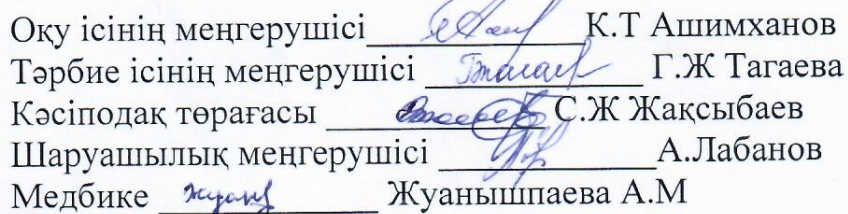 Оқу ісінің меңгерушісі________________К.Т Ашимханов
Тәрбие ісінің меңгерушісі ________________ Г.Ж Тагаева
Кәсіподақ төрағасы ________________ С.Ж Жақсыбаев
Шаруашылық меңгерушісі ________________А.Лабанов
Медбике ________________ Жуанышпаева А.М